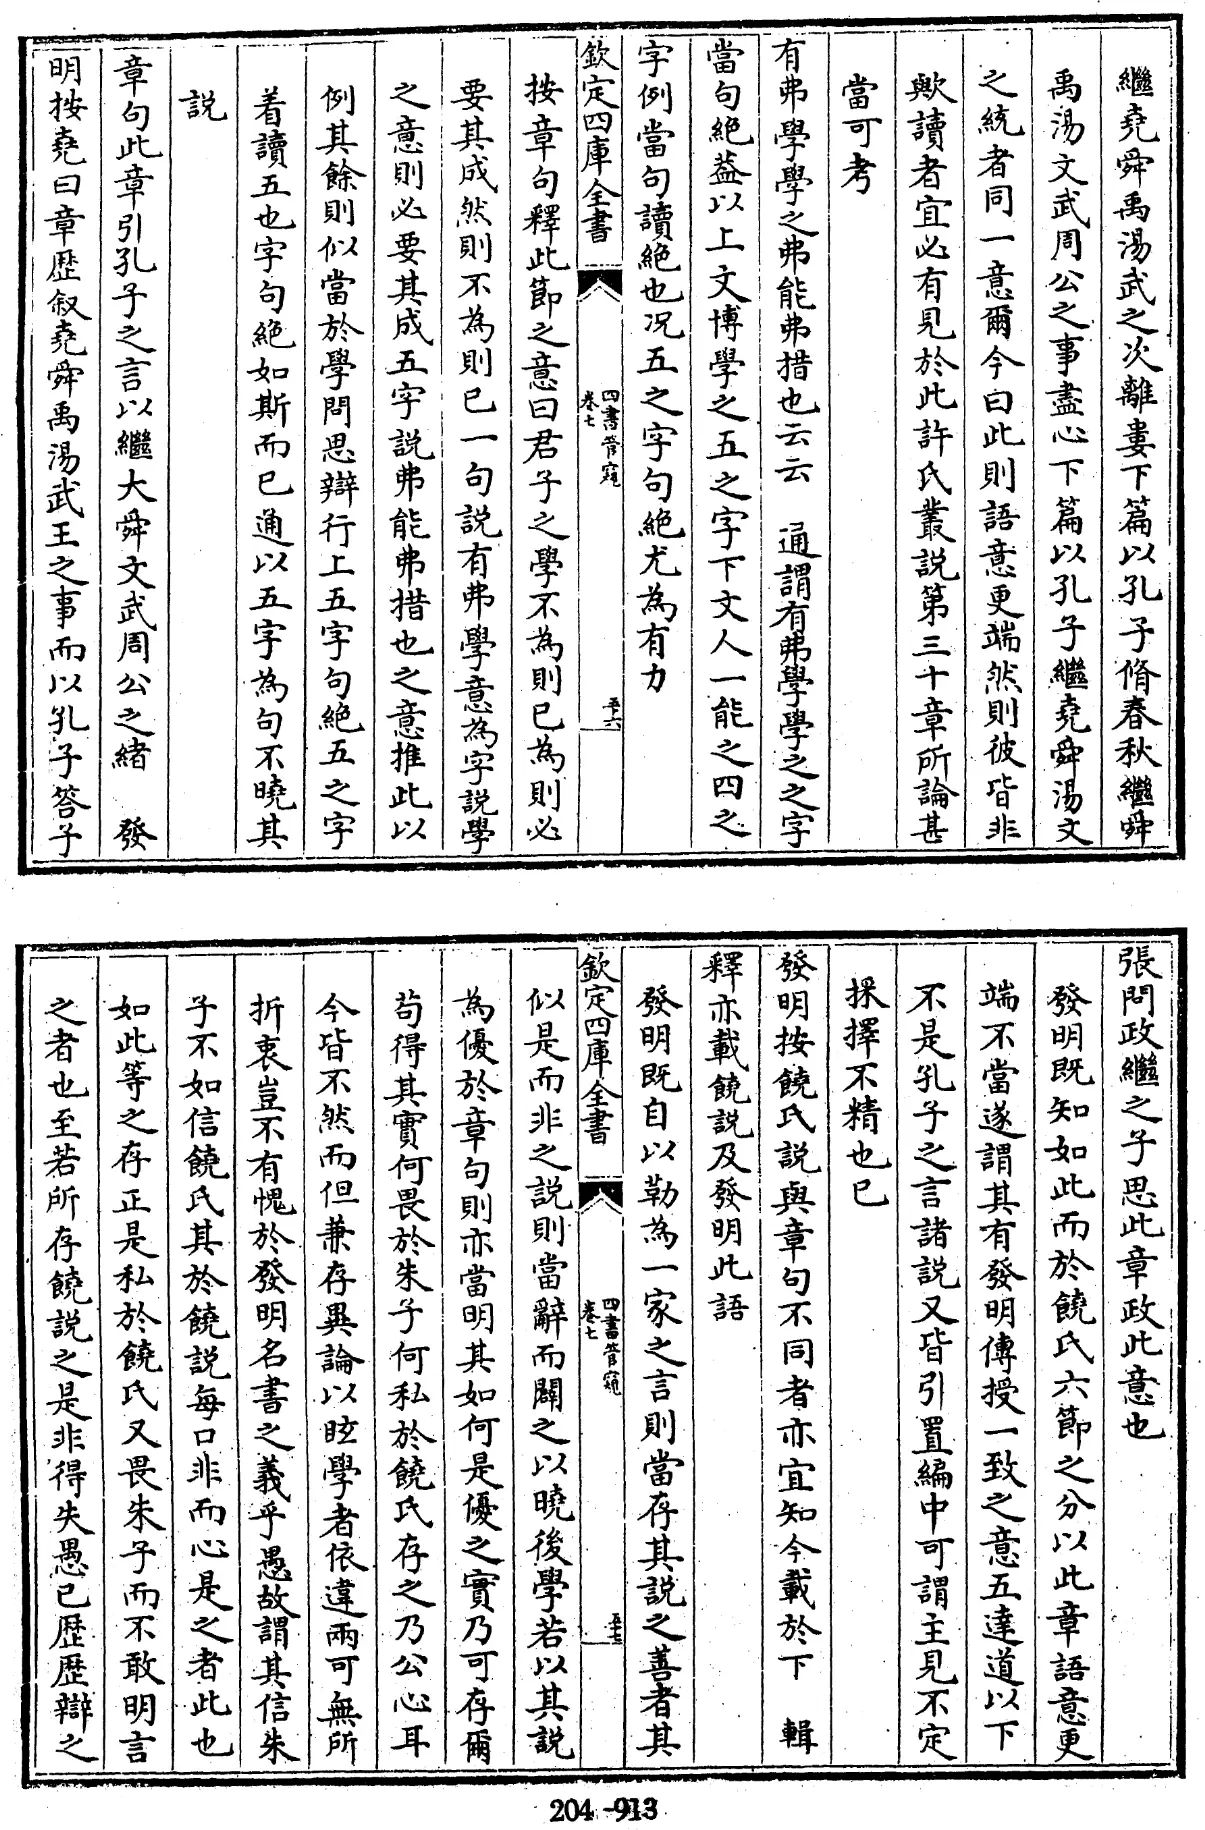 繼堯舜禹湯武之次離婁下篇以孔子脩春秋繼舜
禹湯文武周公之事盡心下篇以孔子繼堯舜湯文
之統者同一意爾今曰此則語意更端然則彼皆非
歟讀者宜必有見於此許氏叢説第三十章所論甚
當可考
有弗學學之弗能弗措也云云　通謂有弗學學之之字
當句絶葢以上文博學之五之字下文人一能之四之
字例當句讀絶也况五之字句絶尤為有力
欽定四庫全書　四書管窺卷七　五十六
按章句釋此節之意曰君子之學不為則已為則必
要其成然則不為則已一句説有弗學意為字説學
之意則必要其成五字説弗能弗措也之意推此以
例其餘則似當於學問思辯行上五字句絶五之字
着讀五也字句絶如斯而已通以五字為句不曉其
説
章句此章引孔子之言以繼大舜文武周公之緒　發
明按堯曰章歴叙堯舜禹湯武王之事而以孔子答子
張問政繼之子思此章政此意也
發明既知如此而於饒氏六節之分以此章語意更
端不當遂謂其有發明傳授一致之意五達道以下
不是孔子之言諸説又皆引置編中可謂主見不定
採擇不精也已
發明按饒氏説與章句不同者亦宜知今載於下　輯
釋亦載饒説及發明此語
發明既自以勒為一家之言則當存其説之善者其
欽定四庫全書　四書管窺卷七　五十七
似是而非之説則當辭而闢之以曉後學若以其説
為優於章句則亦當明其如何是優之實乃可存爾
苟得其實何畏於朱子何私於饒氏存之乃公心耳
今皆不然而但兼存異論以眩學者依違兩可無所
折衷豈不有愧於發明名書之義乎愚故謂其信朱
子不如信饒氏其於饒説每口非而心是之者此也
如此等之存正是私於饒氏又畏朱子而不敢明言
之者也至若所存饒説之是非得失愚已歴歴辯之
204-913